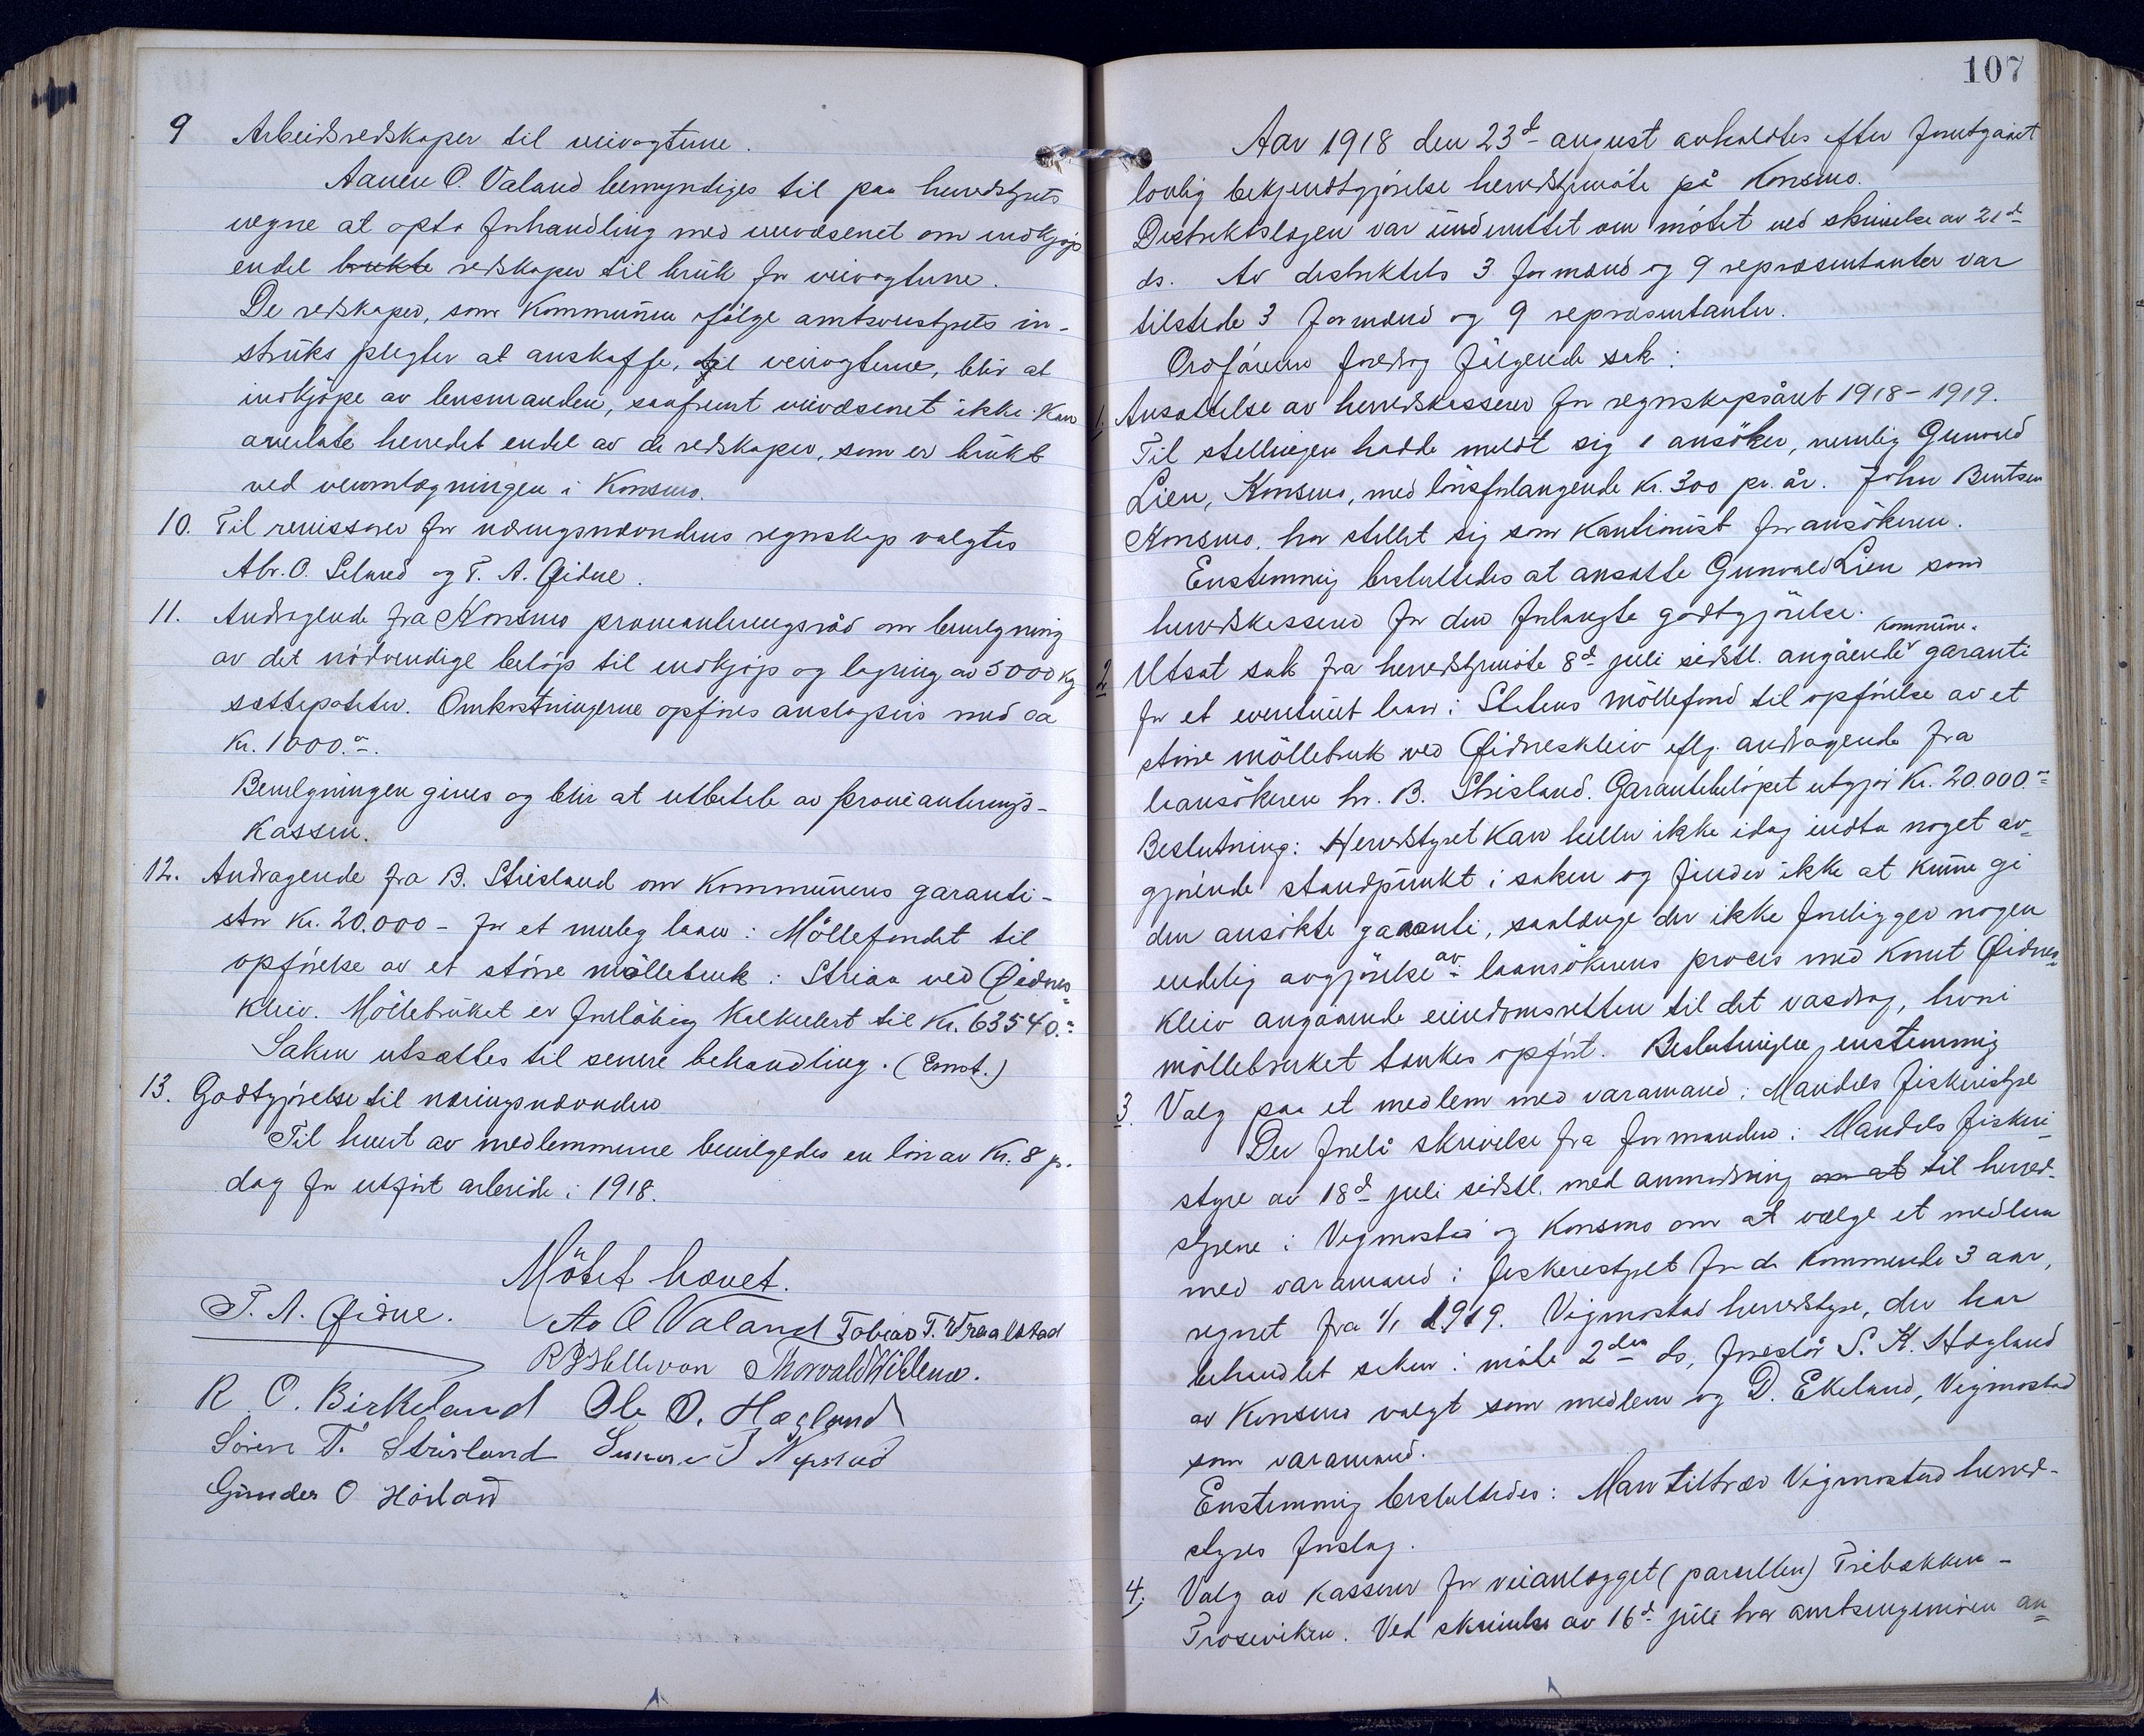 9 Arbeidsredskaper til veivogterne.
Aanen O. Valand bemyndiges til paa herredstyrets
vegne at opta forhandling med veivæsenet om indkjøp
endel brukte redskaper til brük for veivogterne.
De redskaper, som kommünen ifølge amtsveistyrets in-
strüks plegter at anskaffe, til veivogterne, blir at
indkjøpe av lensmanden, saafremt veivæsenet ikke kan
overlate herredet endel av de redskaper, som er brükt
ved veiomlægningen i Konsmo.
10. Til revisorer for næringsnævndens regnskap valgtes
Abr. O. Seland og T. A. Øidne.
11. Andragende fra Konsmo provianteringsråd om bevilgning
av det nödvendige beløp til indkjøp og lagring av 5000 kg
settepoteter. Omkostningerne opføres anslagsvis med ca
Kr. 1000.-
Bevilgningen gives og blir at utbetale av provianterings-
kassen.
12. Andragende fra B. Strisland om kommünens garanti-
stor Kr. 20.000 - for et mulig laan i Möllefondet til
opførelse av et större möllebruk i Striaa ved Øidnes-
kleiv. Möllebrüket er foreløbig kalkulert til Kr. 63540.-
Saken utsættes til senere behandling. (Enst.)
13. Godtgjörelse til næringsnævnden
Til hvert av medlemmerne bevilgedes en lön av Kr. 8 p.
dag for utfört arbeide i 1918.
Mötet hævet.
T. A. Øidne. Aa O Valand Tobias T. Vraalstad
R J Hellevan Thorvald
R. O. Birkeland Ole O. Hægland
Sören T. Strisland
Günder O Höiland
107
Aar 1918 den 23d august avholdtes efter forutgaaet
lovlig bekjendtgjörelse herredstyrmöte på Konsmo.
Distriktslægen var ündrettet om mötet ved skrivelse av 21d
ds. Av distriktets 3 formænd og 9 repræsentanter var
tilstede 3 formænd og 9 repræsentanter.
Ordföreren foredrog fölgende sak:
1. Ansættelse av herredskasserer for regnskapsåret 1918-1919.
Til stellingen hadde meldt sig 1 ansöker, nemlig Gunvald
Lien, Konsmo, med lönsforlangende Kr. 300 pr. år. John Bentsen
Konsmo, har stellet sig som kautionist for ansökeren.
Enstemmig besluttedes at ansætte Gunvald Lien som
herredskasserer for den forlangte godtgjörelse.
kommüne-
2 Utsat sak fra herredstyrmöte 8d juli sidstl. angående garanti
for et eventüelt laan i Statens Möllefond til opförelse av et
större möllebruk ved Øidneskleiv eflg. andragende fra
laansökeren hr. B. Strisland. Garantibelöpet utgjör Kr. 20.000.-
Beslutning: Herredstyret kan heller ikke idag indta noget av-
gjörende standpünkt i saken og finder ikke at künne gi
den ansökte garanti, saalænge der ikke foreligger nogen
endelig avgjörelse av laansökerens proces med Knut Øidnes-
kleiv angaaende eiendomsretten til det vasdrag, hvori
möllebruket tænkes opfört. Beslutningen enstemmig
3. Valg paa et medlem med varamand i Mandals fiskeristyre
Der forelå skrivelse fra formanden i Mandals fiskeri-
styre av 18d juli sidstl. med anmodning om at til herred-
styrene i Vigmostad og Konsmo om at vælge et medlem
med varamand i fiskeristyret for de kommende 3 aar,
regnet fra 1/1 1919. Vigmostad herredstyre, der har
behandlet saken i möte 2den ds, foreslår S. K. Hægland
av Konsmo valgt som medlem og D. Ekeland, Vigmostad
som varamand.
Enstemmig besluttedes: Man tiltræder Vigmostad herred-
styres forslag.
4. Valg av kasserer for veianlægget (parcellen) Tribakken -
Troseviken. Ved skrivelse av 16d jüli har amtsingeniören an-